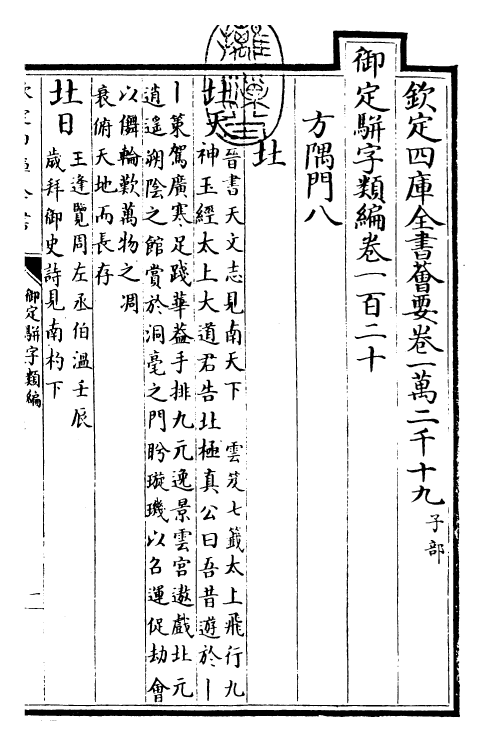 欽定四庫全書薈要卷一萬二千十九 子部
御定駢字類編卷一百二十
方隅門八
北
北天 晉書天文志見南天下 雲笈七籤太上飛行九
神玉經太上大道君告北極真公曰吾昔遊於丨
丨策駕廣寒足踐華葢手排九元逸景雲宮遨戲北元
逍遙朔陰之館賞於洞毫之門盻璇璣以召運促劫會
以儛輪歎萬物之凋
衰俯天地而長存
北日 王逢覽周左丞伯溫壬辰
歲拜御史詩見南杓下
御定駢字類編
一